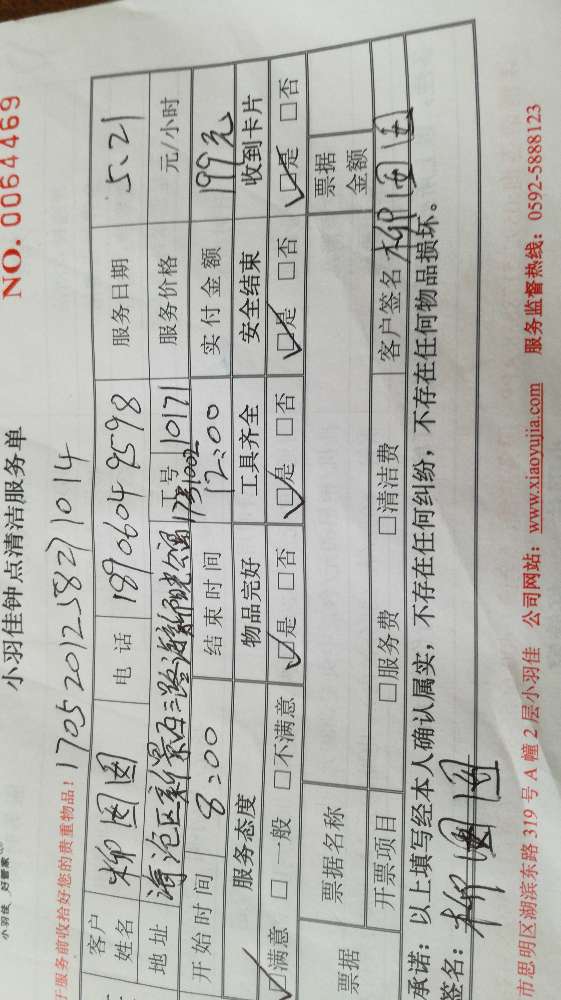 小羽佳 好管家
小羽佳钟点清洁服务单
NO. 0064469
于服务前收拾好您的贵重物品! 1705201258271014
客户姓名 柳园园 电话 18906049598 服务日期 5.21
地址 海沧区新景路 17号1002 工号 10171 服务价格 元/小时
开始时间 8:00 结束时间 12:00 实付金额 199元
服务态度 物品完好 工具齐全 安全结束 收到卡片
☑满意 □一般 □不满意 ☑是 □否 ☑是 □否 ☑是 □否 ☑是 □否
票据 票据名称 票据金额
开票项目 □服务费 □清洁费 客户签名 柳园园
承诺:以上填写经本人确认属实,不存在任何纠纷,不存在任何物品损坏。
签名: 柳园园
市思明区湖滨东路 319 号 A 幢 2 层小羽佳 公司网站: www.xiaoyujia.com 服务监督热线: 0592-5888123